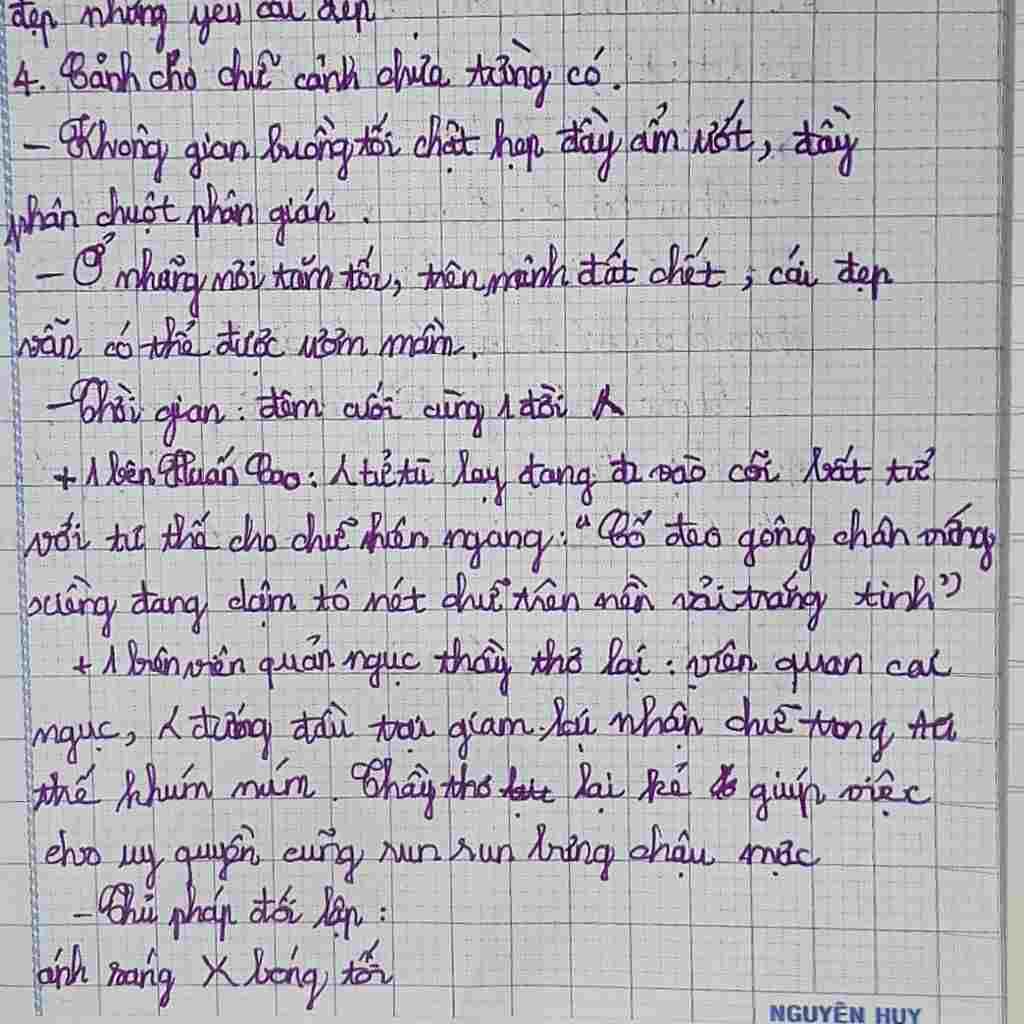 đẹp nhưng yêu cái đẹp
4. Cảnh cho chữ cảnh chưa từng có.
- Không gian buồng tối chật hẹp đầy ẩm ướt, đầy
phân chuột phân gián.
- Ở những nơi tăm tối, trên mảnh đất chết, cái đẹp
vẫn có thể được ươm mầm.
- Thời gian: đêm cuối cùng 1 đời
+ 1 bên Huấn Cao: tử tù lay đang đi vào cõi bất tử
với tư thế cho chữ hiên ngang: "Cổ đeo gông chân vướng
xiềng đang dậm tô nét chữ trên nền vải trắng tinh"
+ 1 bên viên quản ngục thầy thơ lại: viên quan cai
ngục, đứng đầu trại giam lại nhận chữ trong tư
thế khúm núm. Thầy thơ lại kẻ giúp việc
cho uy quyền cũng run run bưng chậu mực
- Thủ pháp đối lập:
ánh sáng X bóng tối
NGUYÊN HUY